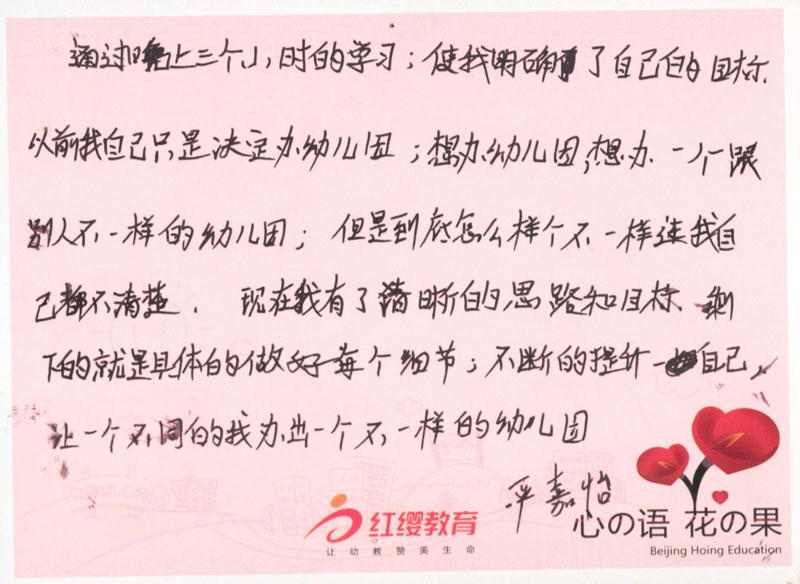 通过晚上三个小时的学习；使我明确了自己的目标.
以前我自己只是决定办幼儿园；想办幼儿园，想办一个跟
别人不一样的幼儿园；但是到底怎么样个不一样连我自
己都不清楚. 现在我有了清晰的思路和目标. 剩
下的就是具体的做好每个细节；不断的提升自己，
让一个不同的我办出一个不一样的幼儿园
嘉怡
红缨教育
让幼教赞美生命
心の语 花の果
Beijing Hoing Education